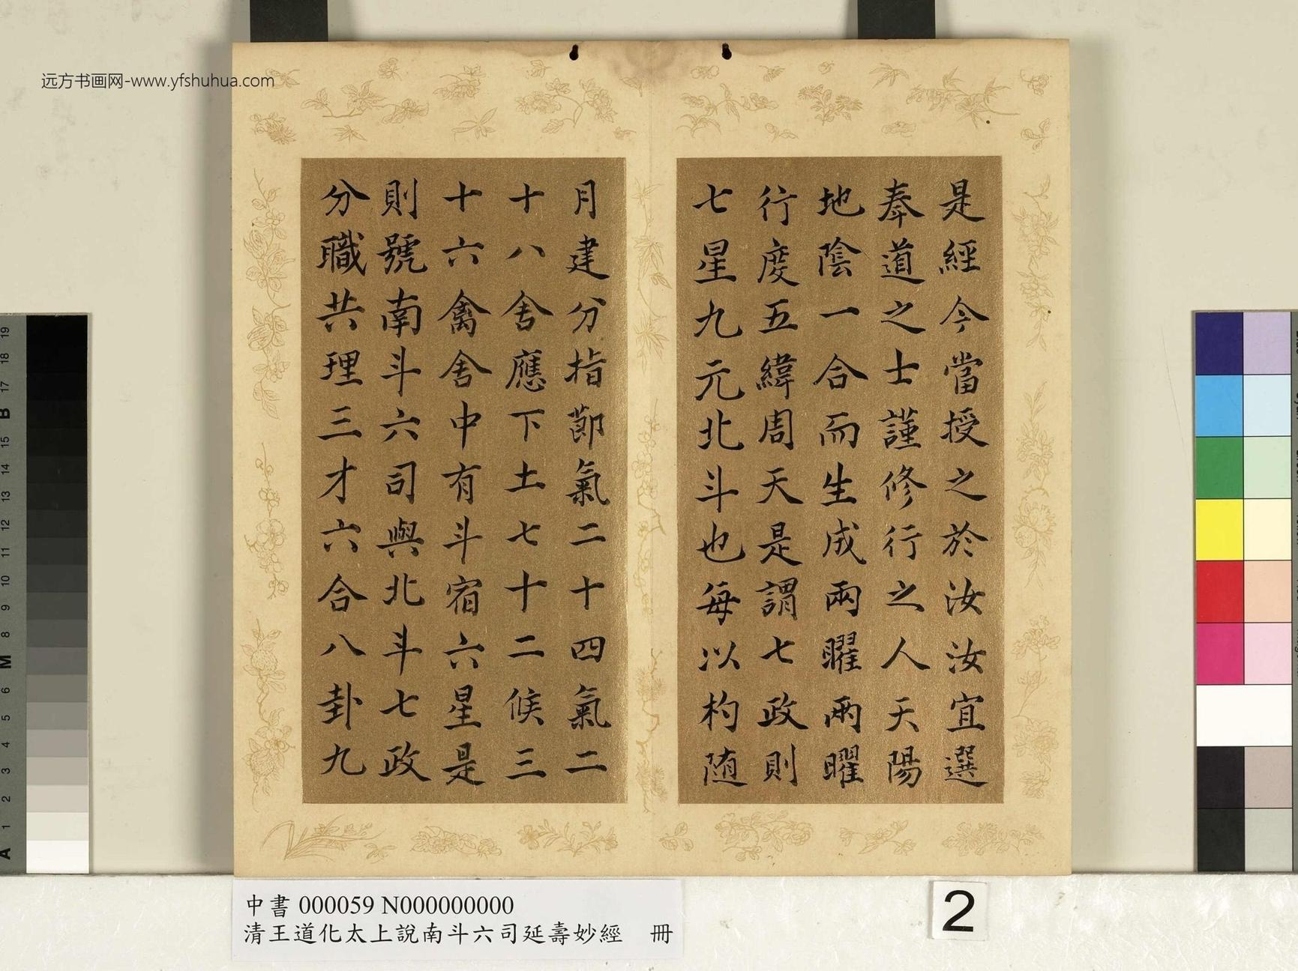 远方书画网-www.yfshuhua.com
是經今當授之於汝汝宜選
奉道之士謹修行之人天陽
地陰一合而生成兩曜兩曜
行度五緯周天是謂七政則
七星九元北斗也每以杓随
月建分指節氣二十四氣二
十八舍應下土七十二候三
十六禽舍中有斗宿六星是
則號南斗六司與北斗七政
分職共理三才六合八卦九
中書 000059 N000000000
清王道化太上說南斗六司延壽妙經 冊
2
19
18
17
B
15
14
13
12
11
10
9
8
M
6
5
4
3
2
1
A